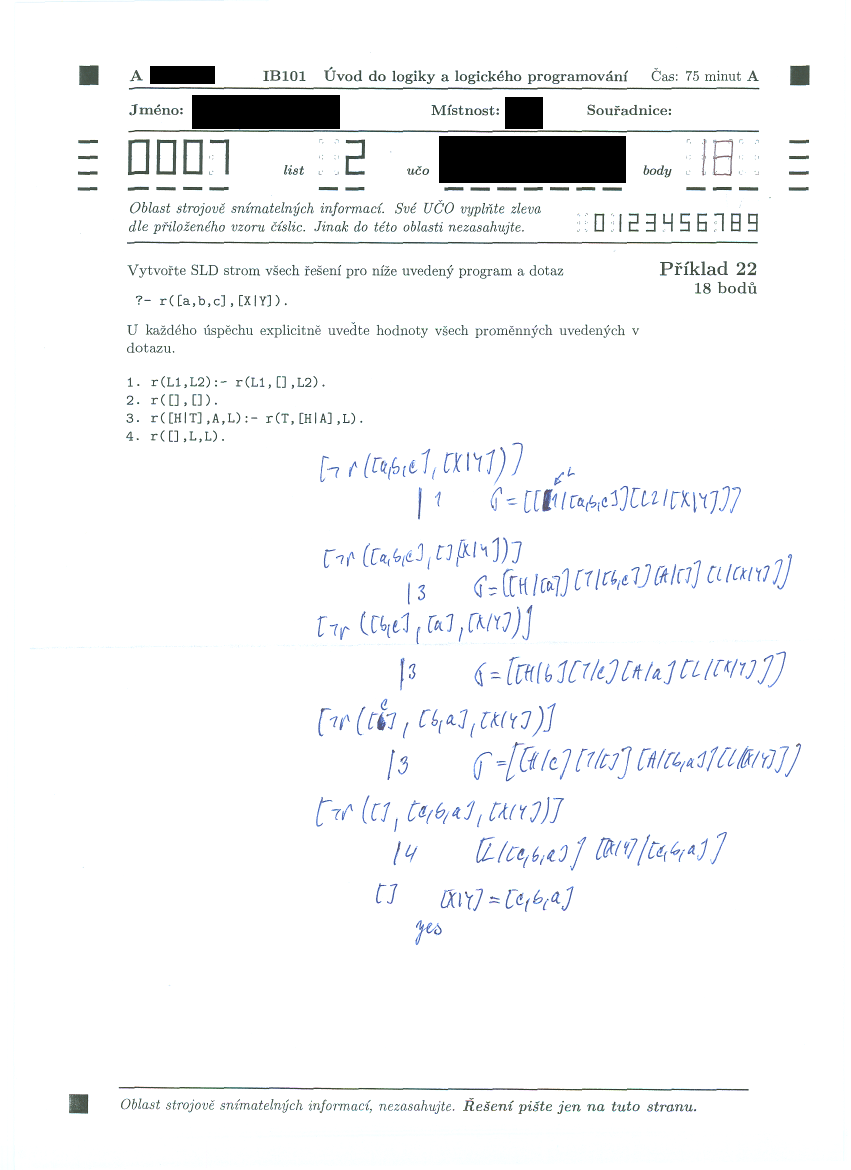 A IB101 Úvod do logiky a logického programování Čas: 75 minut A
Jméno: Místnost: Souřadnice:
0007 list 2 učo body 18
Oblast strojově snímatelných informací. Své UČO vyplňte zleva
dle přiloženého vzoru číslic. Jinak do této oblasti nezasahujte. 0123456789
Vytvořte SLD strom všech řešení pro níže uvedený program a dotaz Příklad 22
18 bodů
?- r([a,b,c],[X|Y]).
U každého úspěchu explicitně uveďte hodnoty všech proměnných uvedených v
dotazu.
1. r(L1,L2):- r(L1,[],L2).
2. r([],[]).
3. r([H|T],A,L):- r(T,[H|A],L).
4. r([],L,L).
[¬r([a,b,c],[X|Y])]
| 1 σ=[[L1/[a,b,c]][L2/[X|Y]]]
[¬r([a,b,c],[],[X|Y])]
|3 σ=[[H/[a]][T/[b,c]][A/[]][L/[X|Y]]]
[¬r([b,c],[a],[X|Y])]
|3 σ=[[H/b][T/c][A/a][L/[X|Y]]]
[¬r([c],[b,a],[X|Y])]
|3 σ=[[H/c][T/[]][A/[b,a]][L/[X|Y]]]
[¬r([],[c,b,a],[X|Y])]
|4 [L/[c,b,a]] [[X|Y]/[c,b,a]]
[] [X|Y]=[c,b,a]
yes
Oblast strojově snímatelných informací, nezasahujte. Řešení pište jen na tuto stranu.